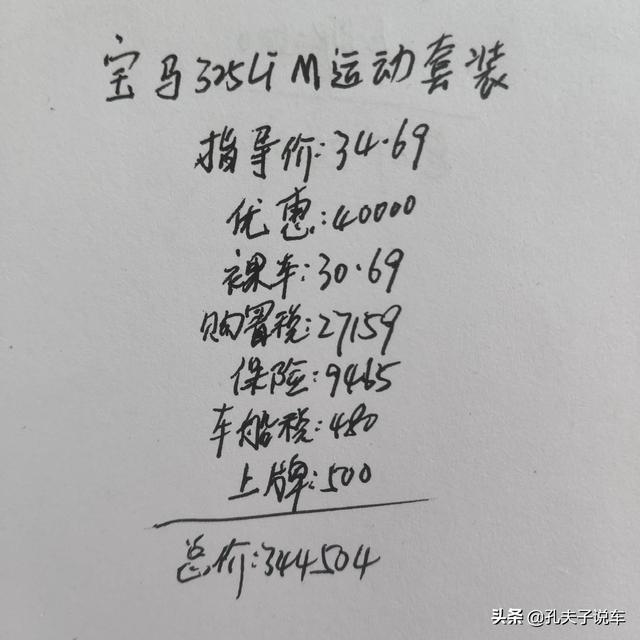 宝马325Li M运动套装
指导价:34.69
优惠:40000
裸车:30.69
购置税:27159
保险:9465
车船税:480
上牌:500
总价:344504
头条 @孔夫子说车